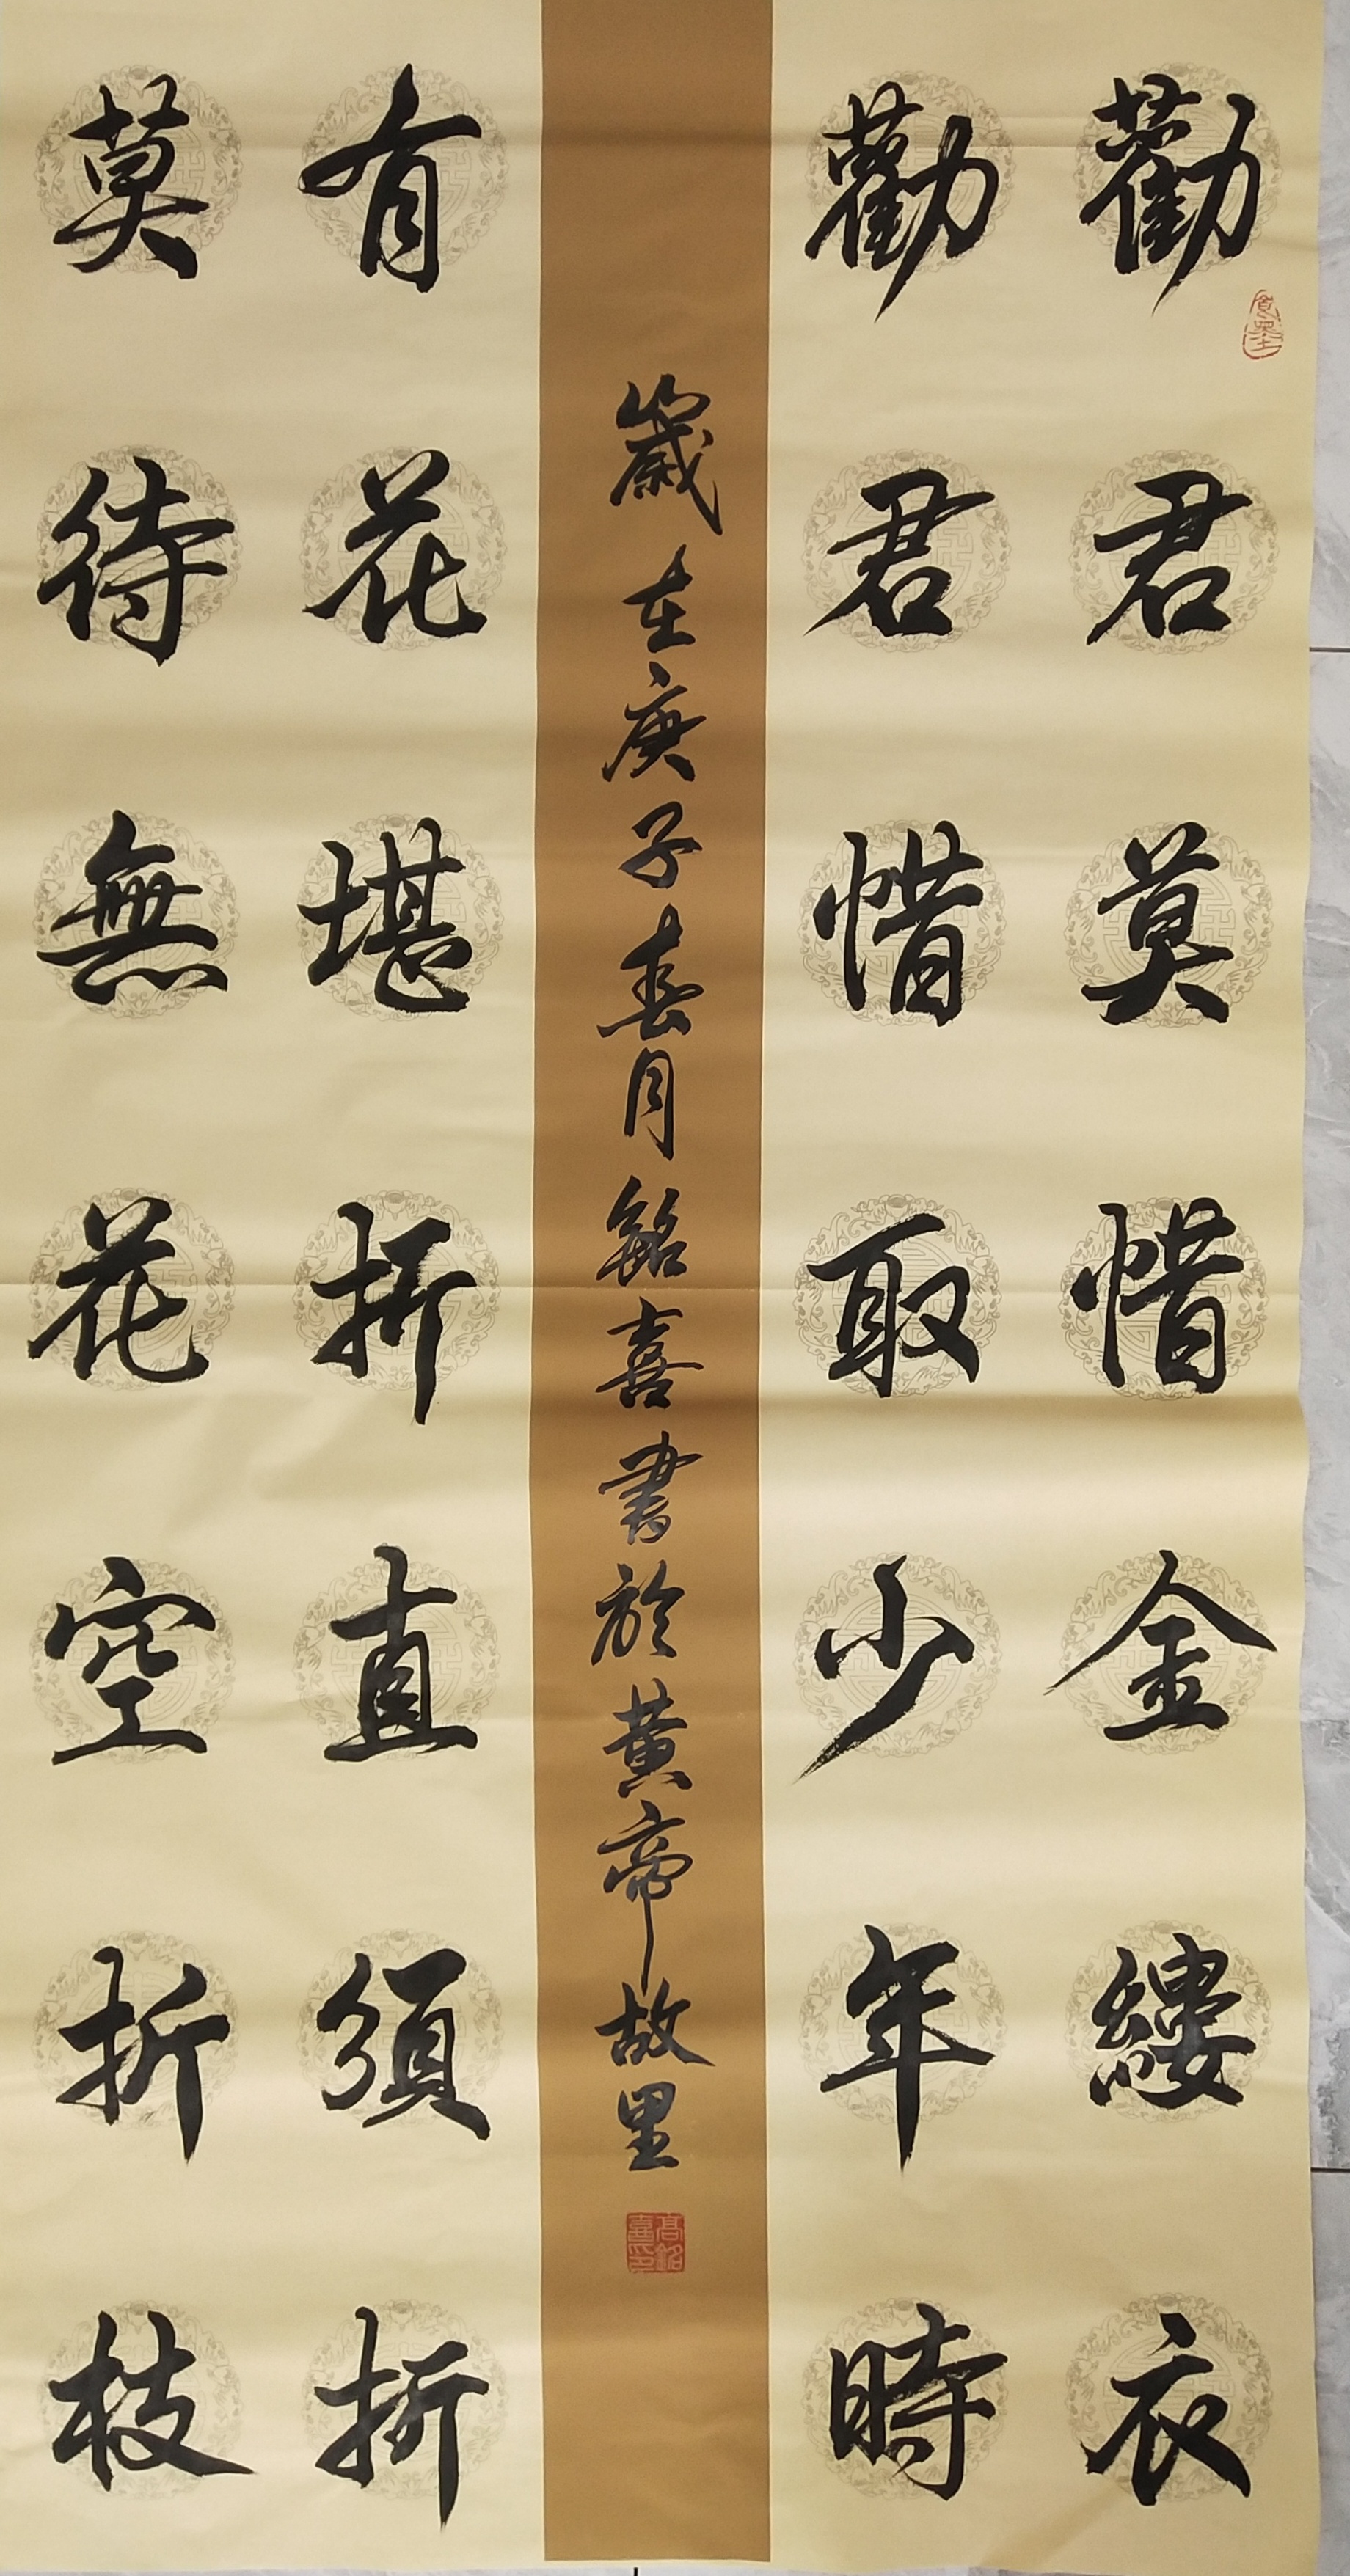 勸君莫惜金縷衣
勸君惜取少年時
歲在庚子春月銘喜書於黃帝故里
高銘喜印
有花堪折直須折
莫待無花空折枝